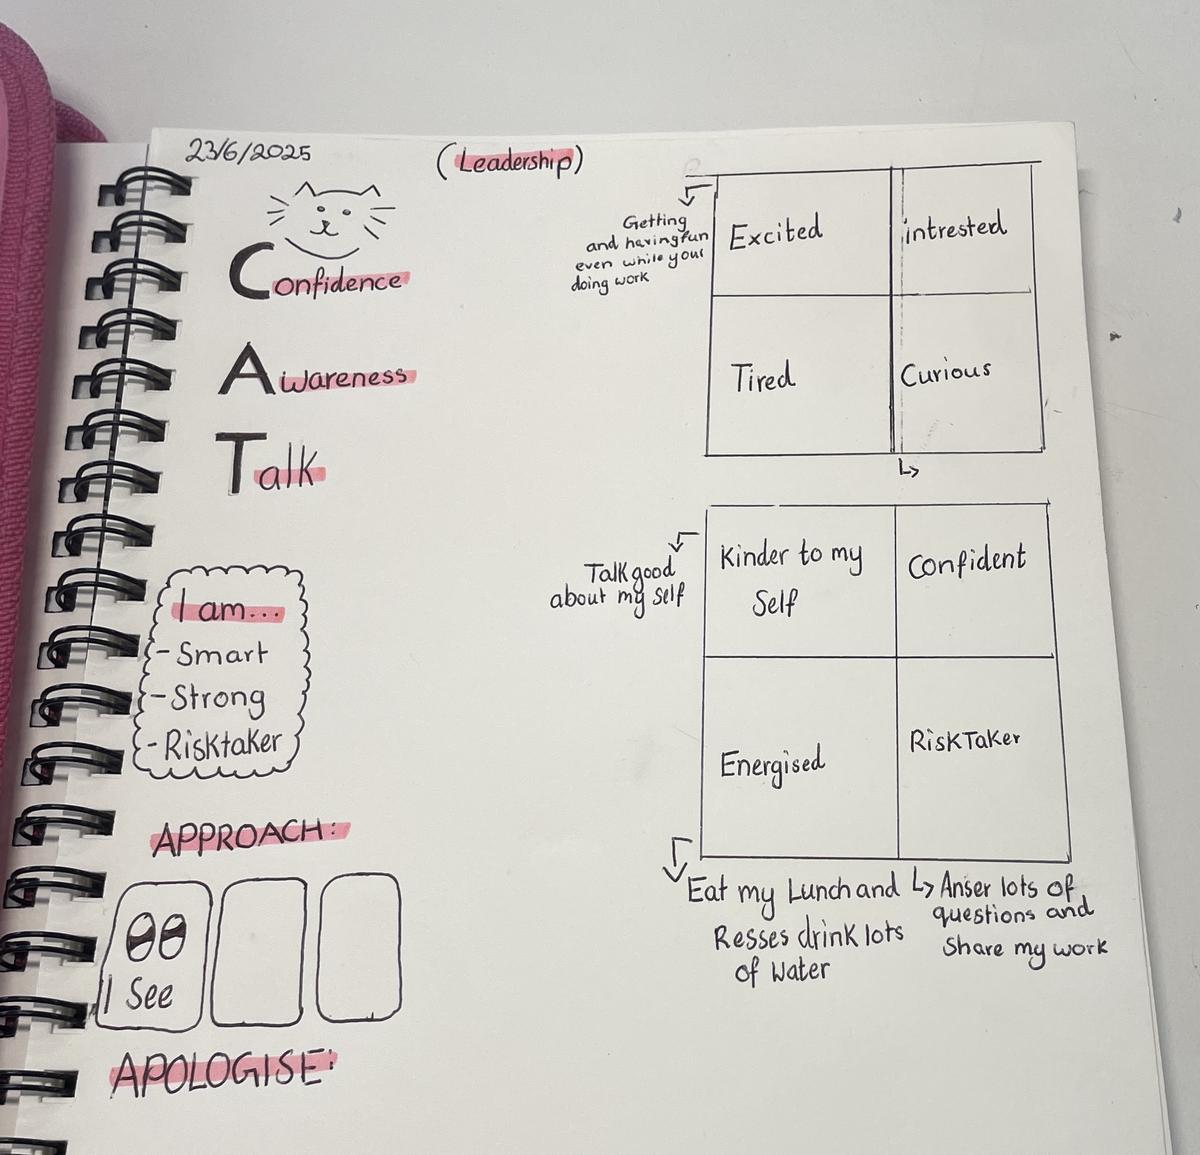 23/6/2025
(Leadership)
Confidence
Awareness
Talk
I am...
- Smart
- Strong
- Risktaker
APPROACH:
I See
APOLOGISE:
Getting
and having fun
even while your
doing work
Excited
intrested
Tired
Curious
Talk good
about my self
Kinder to my
Self
Confident
Energised
RiskTaker
Eat my Lunch and
Resses drink lots
of Water
Anser lots of
questions and
Share my work